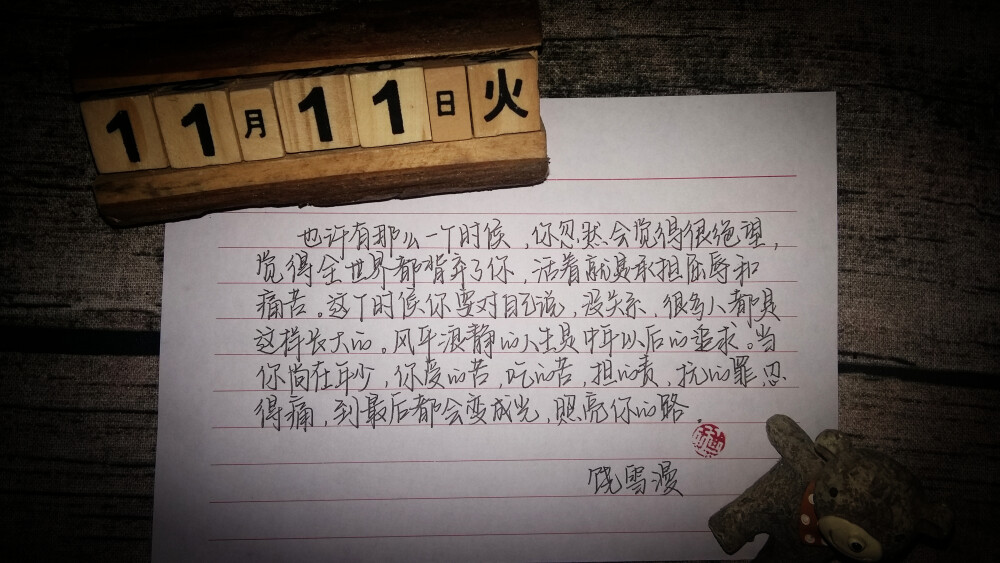 11月11日火
也许有那么一个时候,你忽然会觉得很绝望,
觉得全世界都背弃了你,活着就是承担屈辱和
痛苦。这个时候你要对自己说,没关系,很多人都是
这样长大的。风平浪静的人生是中年以后的追求。当
你尚在年少,你受的苦,吃的苦,担的责,抗的罪,忍
得痛,到最后都会变成光,照亮你的路.
饶雪漫